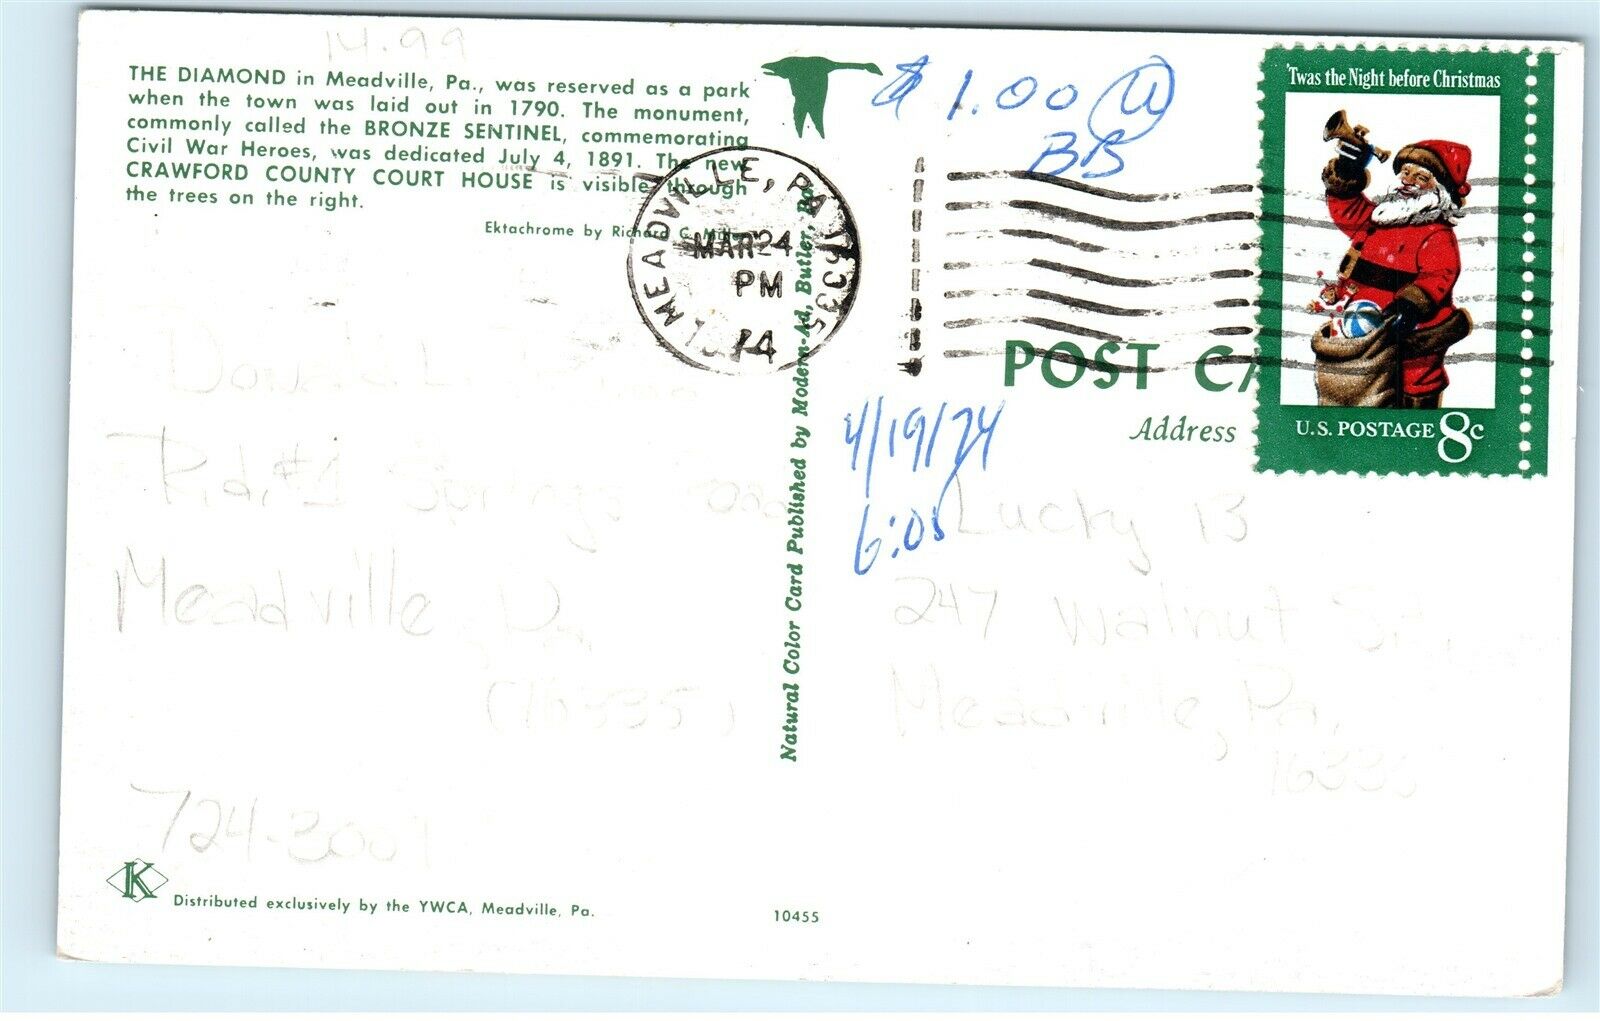 14.99
THE DIAMOND in Meadville, Pa., was reserved as a park
when the town was laid out in 1790. The monument,
commonly called the BRONZE SENTINEL, commemorating
Civil War Heroes, was dedicated July 4, 1891. The new
CRAWFORD COUNTY COURT HOUSE is visible through
the trees on the right.
Ektachrome by Richard C. Miller
MEADVILLE, PA 16335
MAR 24
PM
1974
$1.00 @
BB
'Twas the Night before Christmas
U.S. POSTAGE 8c
POST CA
Address
4/19/74
6:05
Natural Color Card Published by Modern-Ad, Butler, Pa.
Donald L.
R.d.#1 Springs Road
Meadville, Pa.
(16335)
724-3001
Lucky 13
247 Walnut St.
Meadville, Pa.
16335
K
Distributed exclusively by the YWCA, Meadville, Pa.
10455